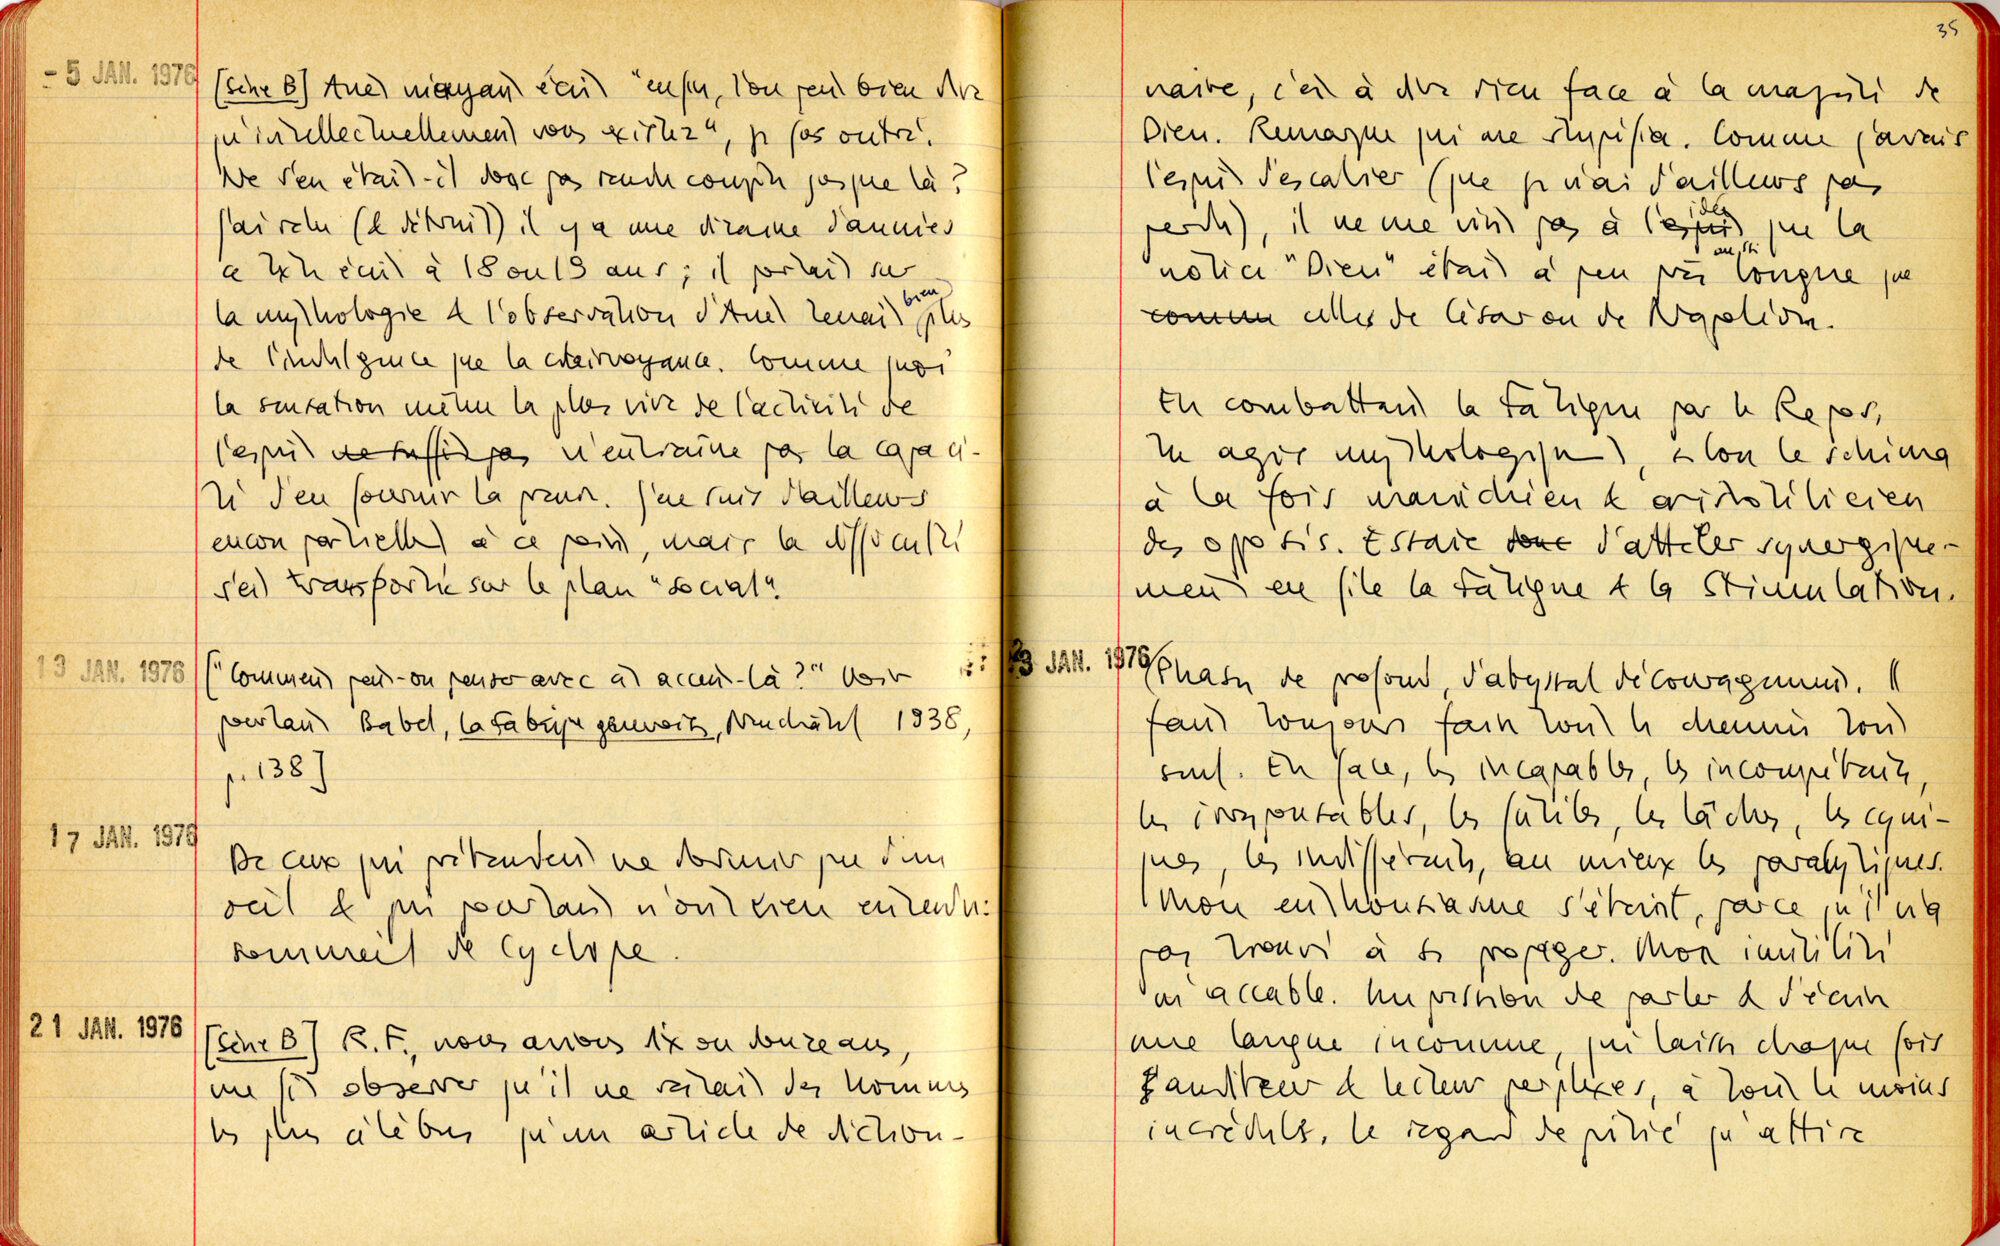 - 5 JAN. 1976
[Série B] Anet m'ayant écrit "enfin, l'on peut bien dire
qu'intellectuellement vous existez", je fus outré.
Ne s'en était-il donc pas rendu compte jusque là ?
J'ai relu (& détruit) il y a une dizaine d'années
ce texte écrit à 18 ou 19 ans ; il portait sur
la mythologie & l'observation d'Anet tenait bien plus
de l'indulgence que la clairvoyance. Comme quoi
la sensation même la plus vive de l'activité de
l'esprit ne suffit pas n'entraîne pas la capaci-
té d'en fournir la preuve. J'en suis d'ailleurs
encore partiellement à ce point, mais la difficulté
s'est transportée sur le plan "social".
13 JAN. 1976
["Comment peut-on penser avec cet accent-là ?" Voir
pourtant Babel, la Fabrique genevoise, Neuchâtel 1938,
p. 138]
17 JAN. 1976
De ceux qui prétendent ne dormir que d'un
œil & qui pourtant n'ont rien entendu:
sommeil de Cyclope.
21 JAN. 1976
[Série B] R. F., nous avions dix ou douze ans,
me fit observer qu'il ne restait des hommes
les plus célèbres qu'un article de diction-
35
naire, c'est à dire rien face à la majesté de
Dieu. Remarque qui me stupéfia. Comme j'avais
l'esprit d'escalier (que je n'ai d'ailleurs pas
perdu), il ne me vint pas à l'esprit idée que la
notice "Dieu" était à peu près aussi longue que
comme celles de César ou de Napoléon.
En combattant la Fatigue par le Repos,
tu agis mythologiquement, selon le schéma
à la fois manichéen & aristotélicien
des opposés. Essaie donc d'atteler synergique-
ment en file la Fatigue & la Stimulation.
23 JAN. 1976
Phases de profond, d'abyssal découragement. Il
faut toujours faire tout le chemin tout
seul. En face, les incapables, les incompétents,
les irresponsables, les futiles, les lâches, les cyni-
ques, les indifférents, au mieux les paralytiques.
Mon enthousiasme s'éteint, parce qu'il n'a
pas trouvé à se propager. Mon inutilité
m'accable. Impression de parler & d'écrire
une langue inconnue, qui laisse chaque fois
auditeur & lecteur perplexes, à tout le moins
incrédules. Le regard de pitié qu'attire